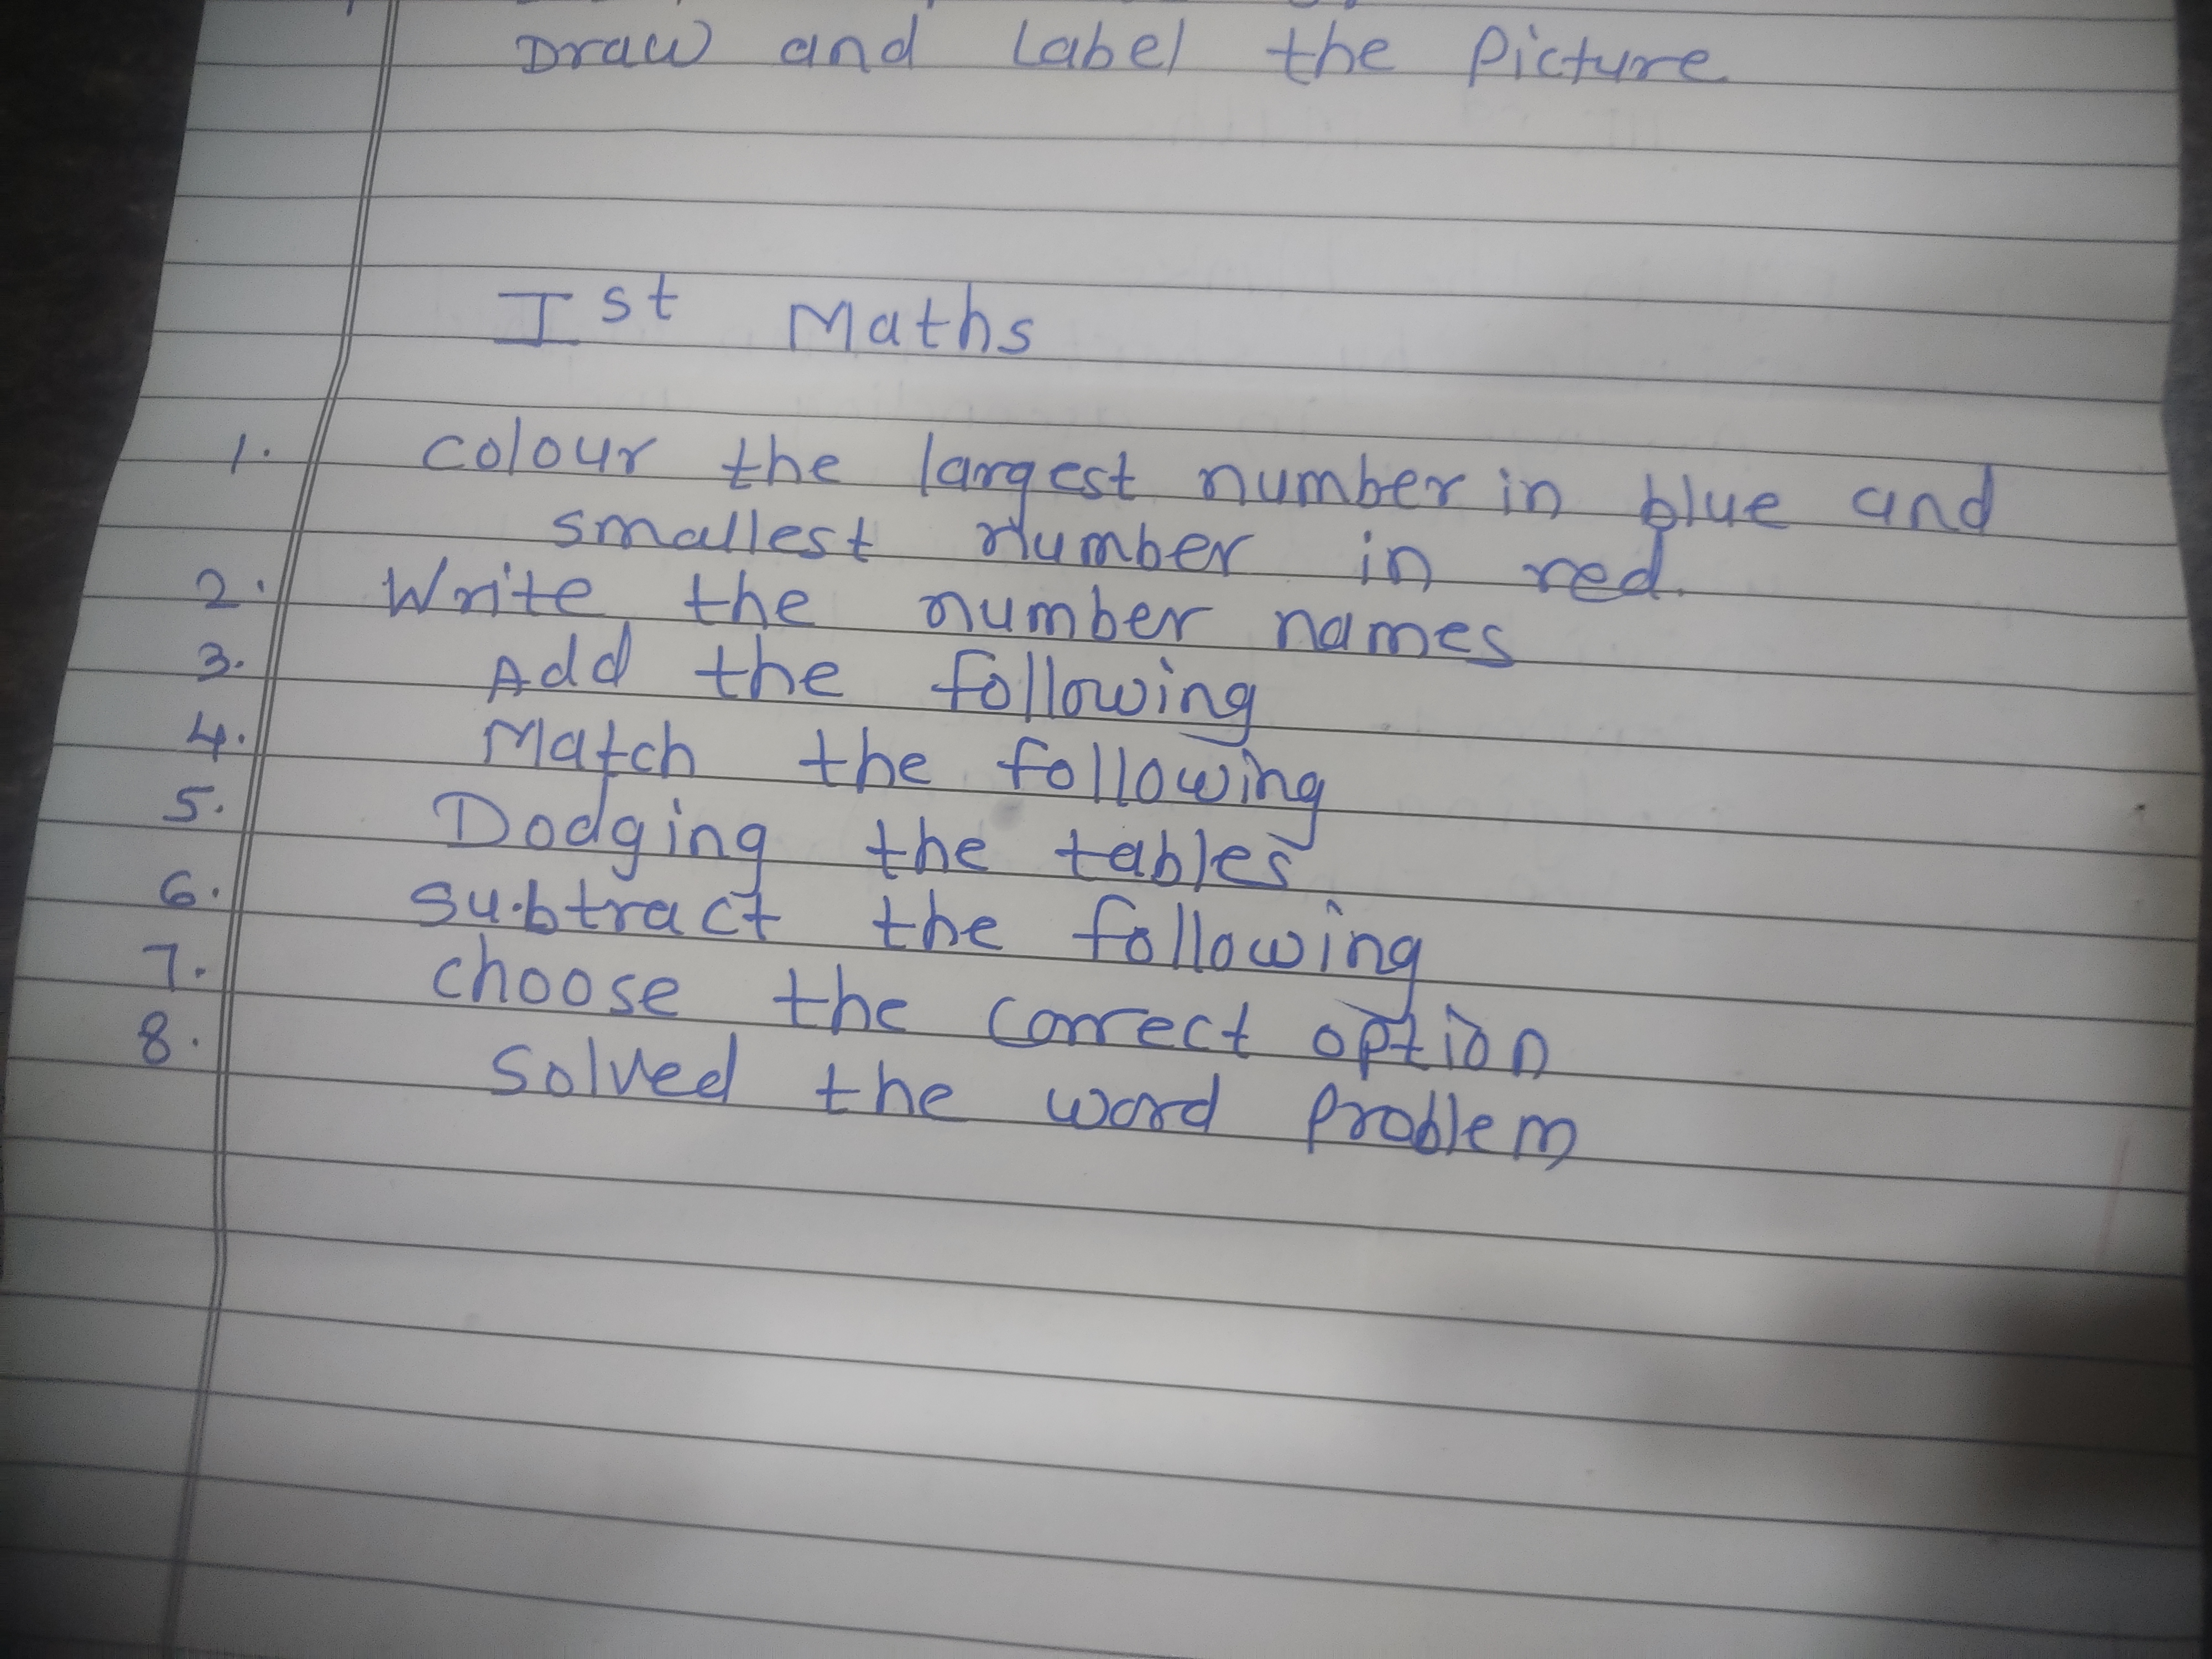 Draw and Label the Picture
Ist Maths
1. colour the largest number in blue and
smallest number in red.
2. Write the number names
3. Add the following
4. Match the following
5. Dodging the tables
6. Subtract the following
7. choose the correct option
8. Solved the word Problem